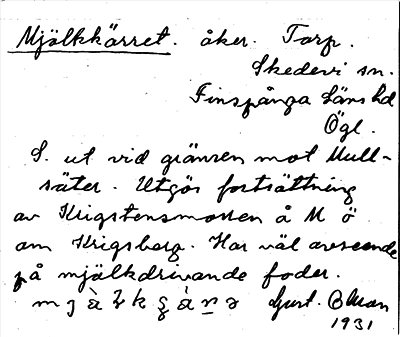 Mjölkkärret. åker. Torp.
Skedevi sn.
Finspånga Läns hd
Ögl.
S. ut vid gränsen mot Mull-
säter. Utgör fortsättning
av Krigstensmossen å M ö
om Krigsberg. Har väl avseende
på mjölkdrivande foder.
Gust.
1931